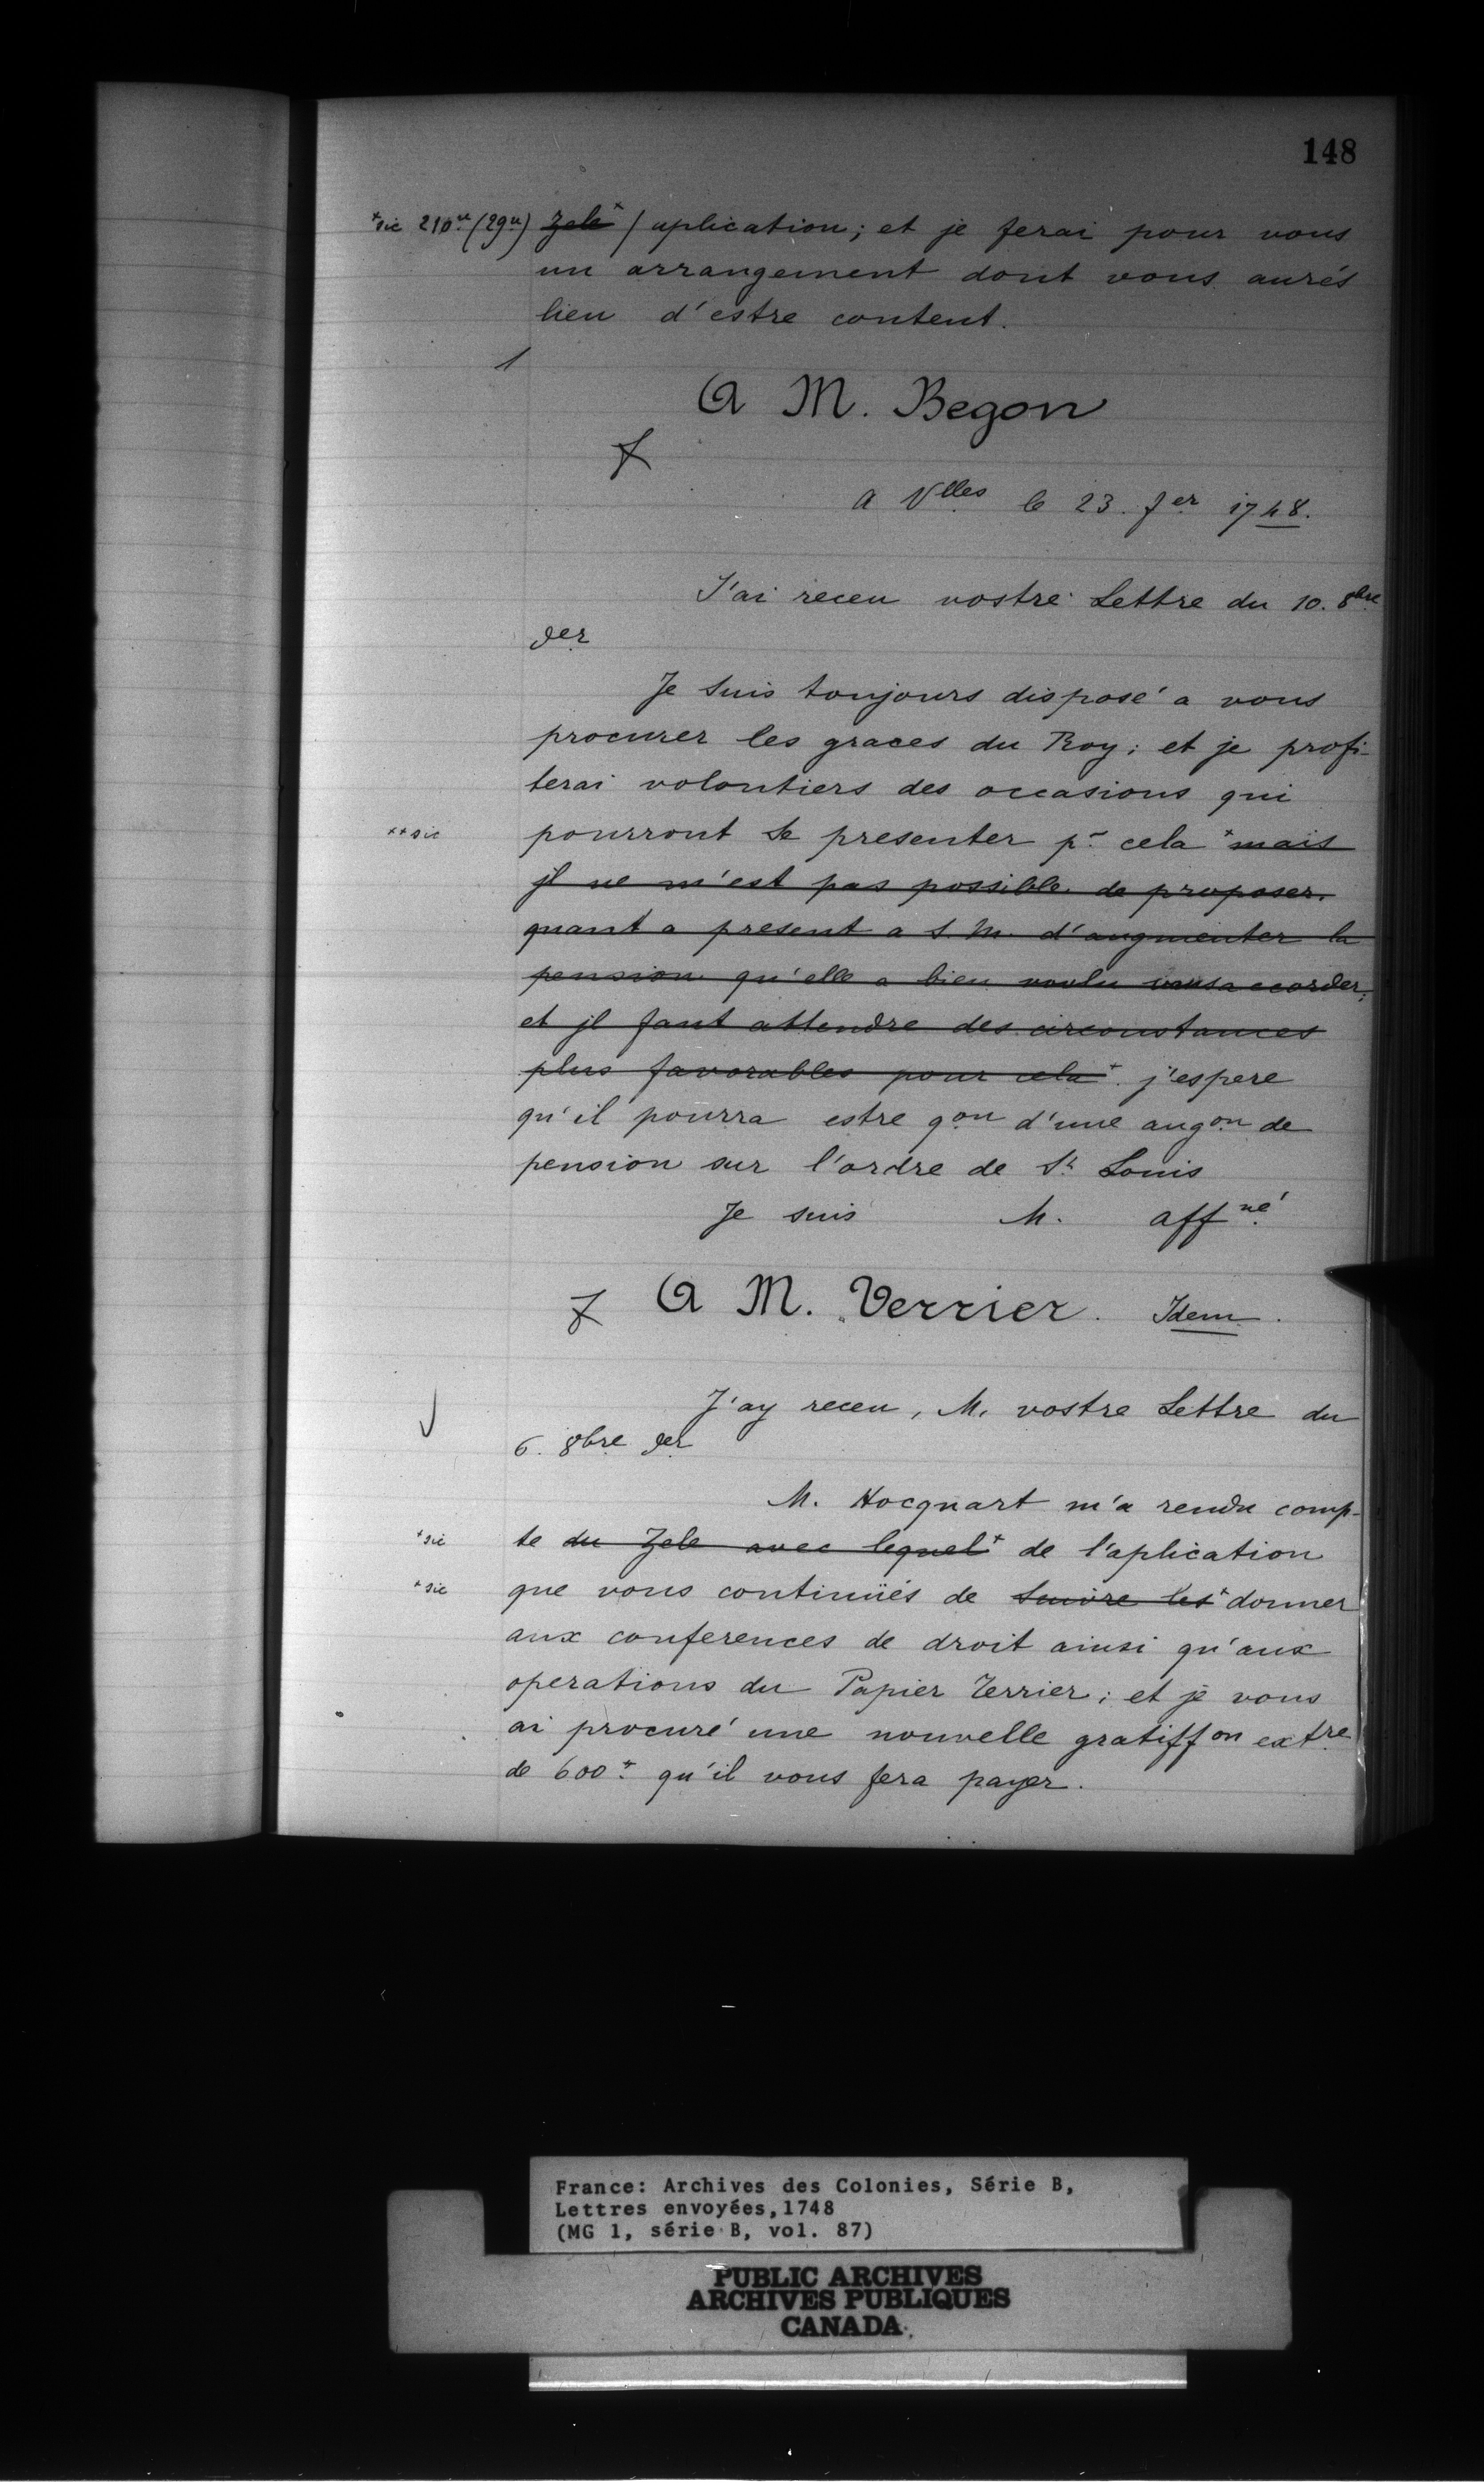 148
+sic 210.(29.) Zele+ / aplication; et je ferai pour vous
un arrangement dont vous aurés
lieu d'estre content.
A M. Begon
A Vlles le 23. fer 1748.
J'ai receu vostre Lettre du 10. 8bre
der
Je suis toujours disposé a vous
procurer les graces du Roy; et je profi-
terai volontiers des occasions qui
++sic pourront se presenter pr cela + mais
jl ne m'est pas possible de proposer.
quant a present a S. M. d'augmenter la
pension qu'elle a bien voulu vous accorder;
et jl faut attendre des circonstances
plus favorables pour cela+. j'espere
qu'il pourra estre qon d'une augon de
pension sur l'ordre de St Louis
Je suis M. affné
A M. Verrier. Idem.
J'ay receu, M. vostre Lettre du
6. 8bre der
M. Hocquart m'a rendu comp-
+sic te du Zele avec lequel+ de l'aplication
+sic que vous continüés de suivre les+ donner
aux conferences de droit ainsi qu'aux
operations du Papier Terrier; et je vous
ai procuré une nouvelle gratiffon extre
de 600# qu'il vous fera payer.
France: Archives des Colonies, Série B,
Lettres envoyées, 1748
(MG 1, série B, vol. 87)
PUBLIC ARCHIVES
ARCHIVES PUBLIQUES
CANADA